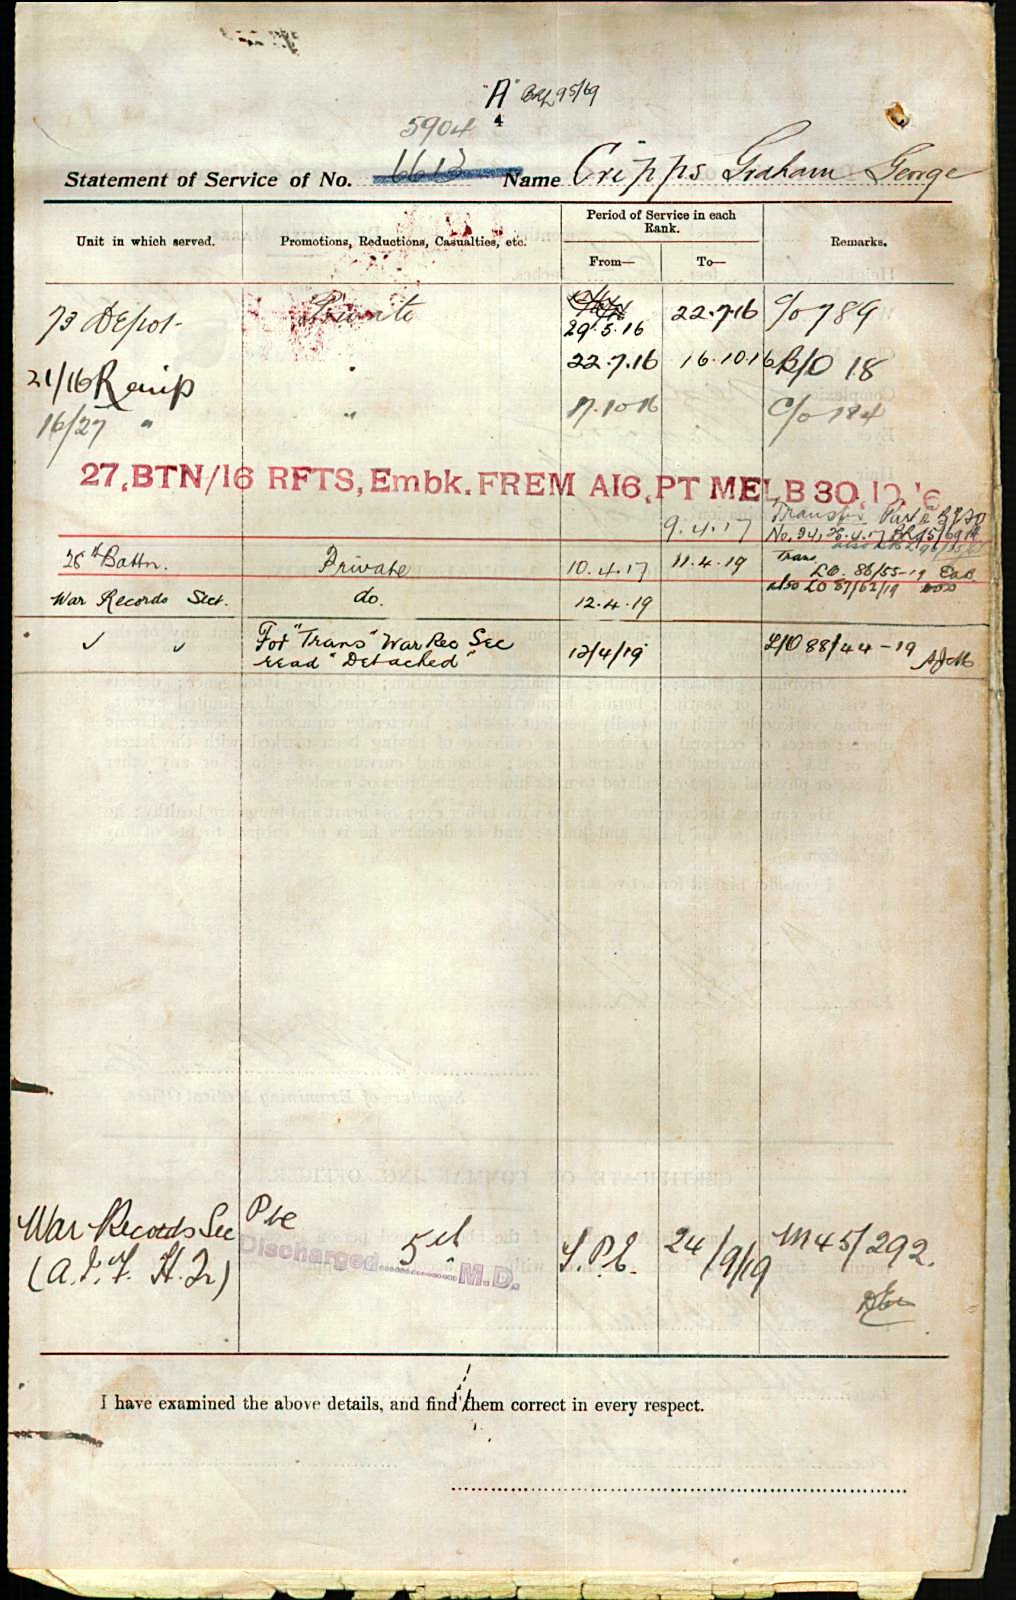 "A" 95/69
4
5904
Statement of Service of No. 6613 Name Cripps Graham George
Unit in which served. Promotions, Reductions, Casualties, etc. Period of Service in each Rank. From— To— Remarks.
73 Depot. Private 29.5.16 22.7.16 C/o 789
21/16 Reinf 22.7.16 16.10.16 B/O 18
16/27 " " 17.10.16 C/o 184
27.BTN/16 RFTS, Embk. FREM A16, PT MELB 30.10.'6
9.4.17 Transfer Part 2
No. 34, 95/69
28th Battn. Private 10.4.17 11.4.19 Trans LO. 86/55-19
War Records Sect. do. 12.4.19 also LO 87/62/19
✓ ✓ For "Trans" War Rec Sec 12/4/19 L/O 88/44-19
read "Detached" AJM
War Records Sec Pte
(A.I.F. H.Q.) Discharged 5th M.D. T.P.E. 24/9/19 M45/292.
I have examined the above details, and find them correct in every respect.